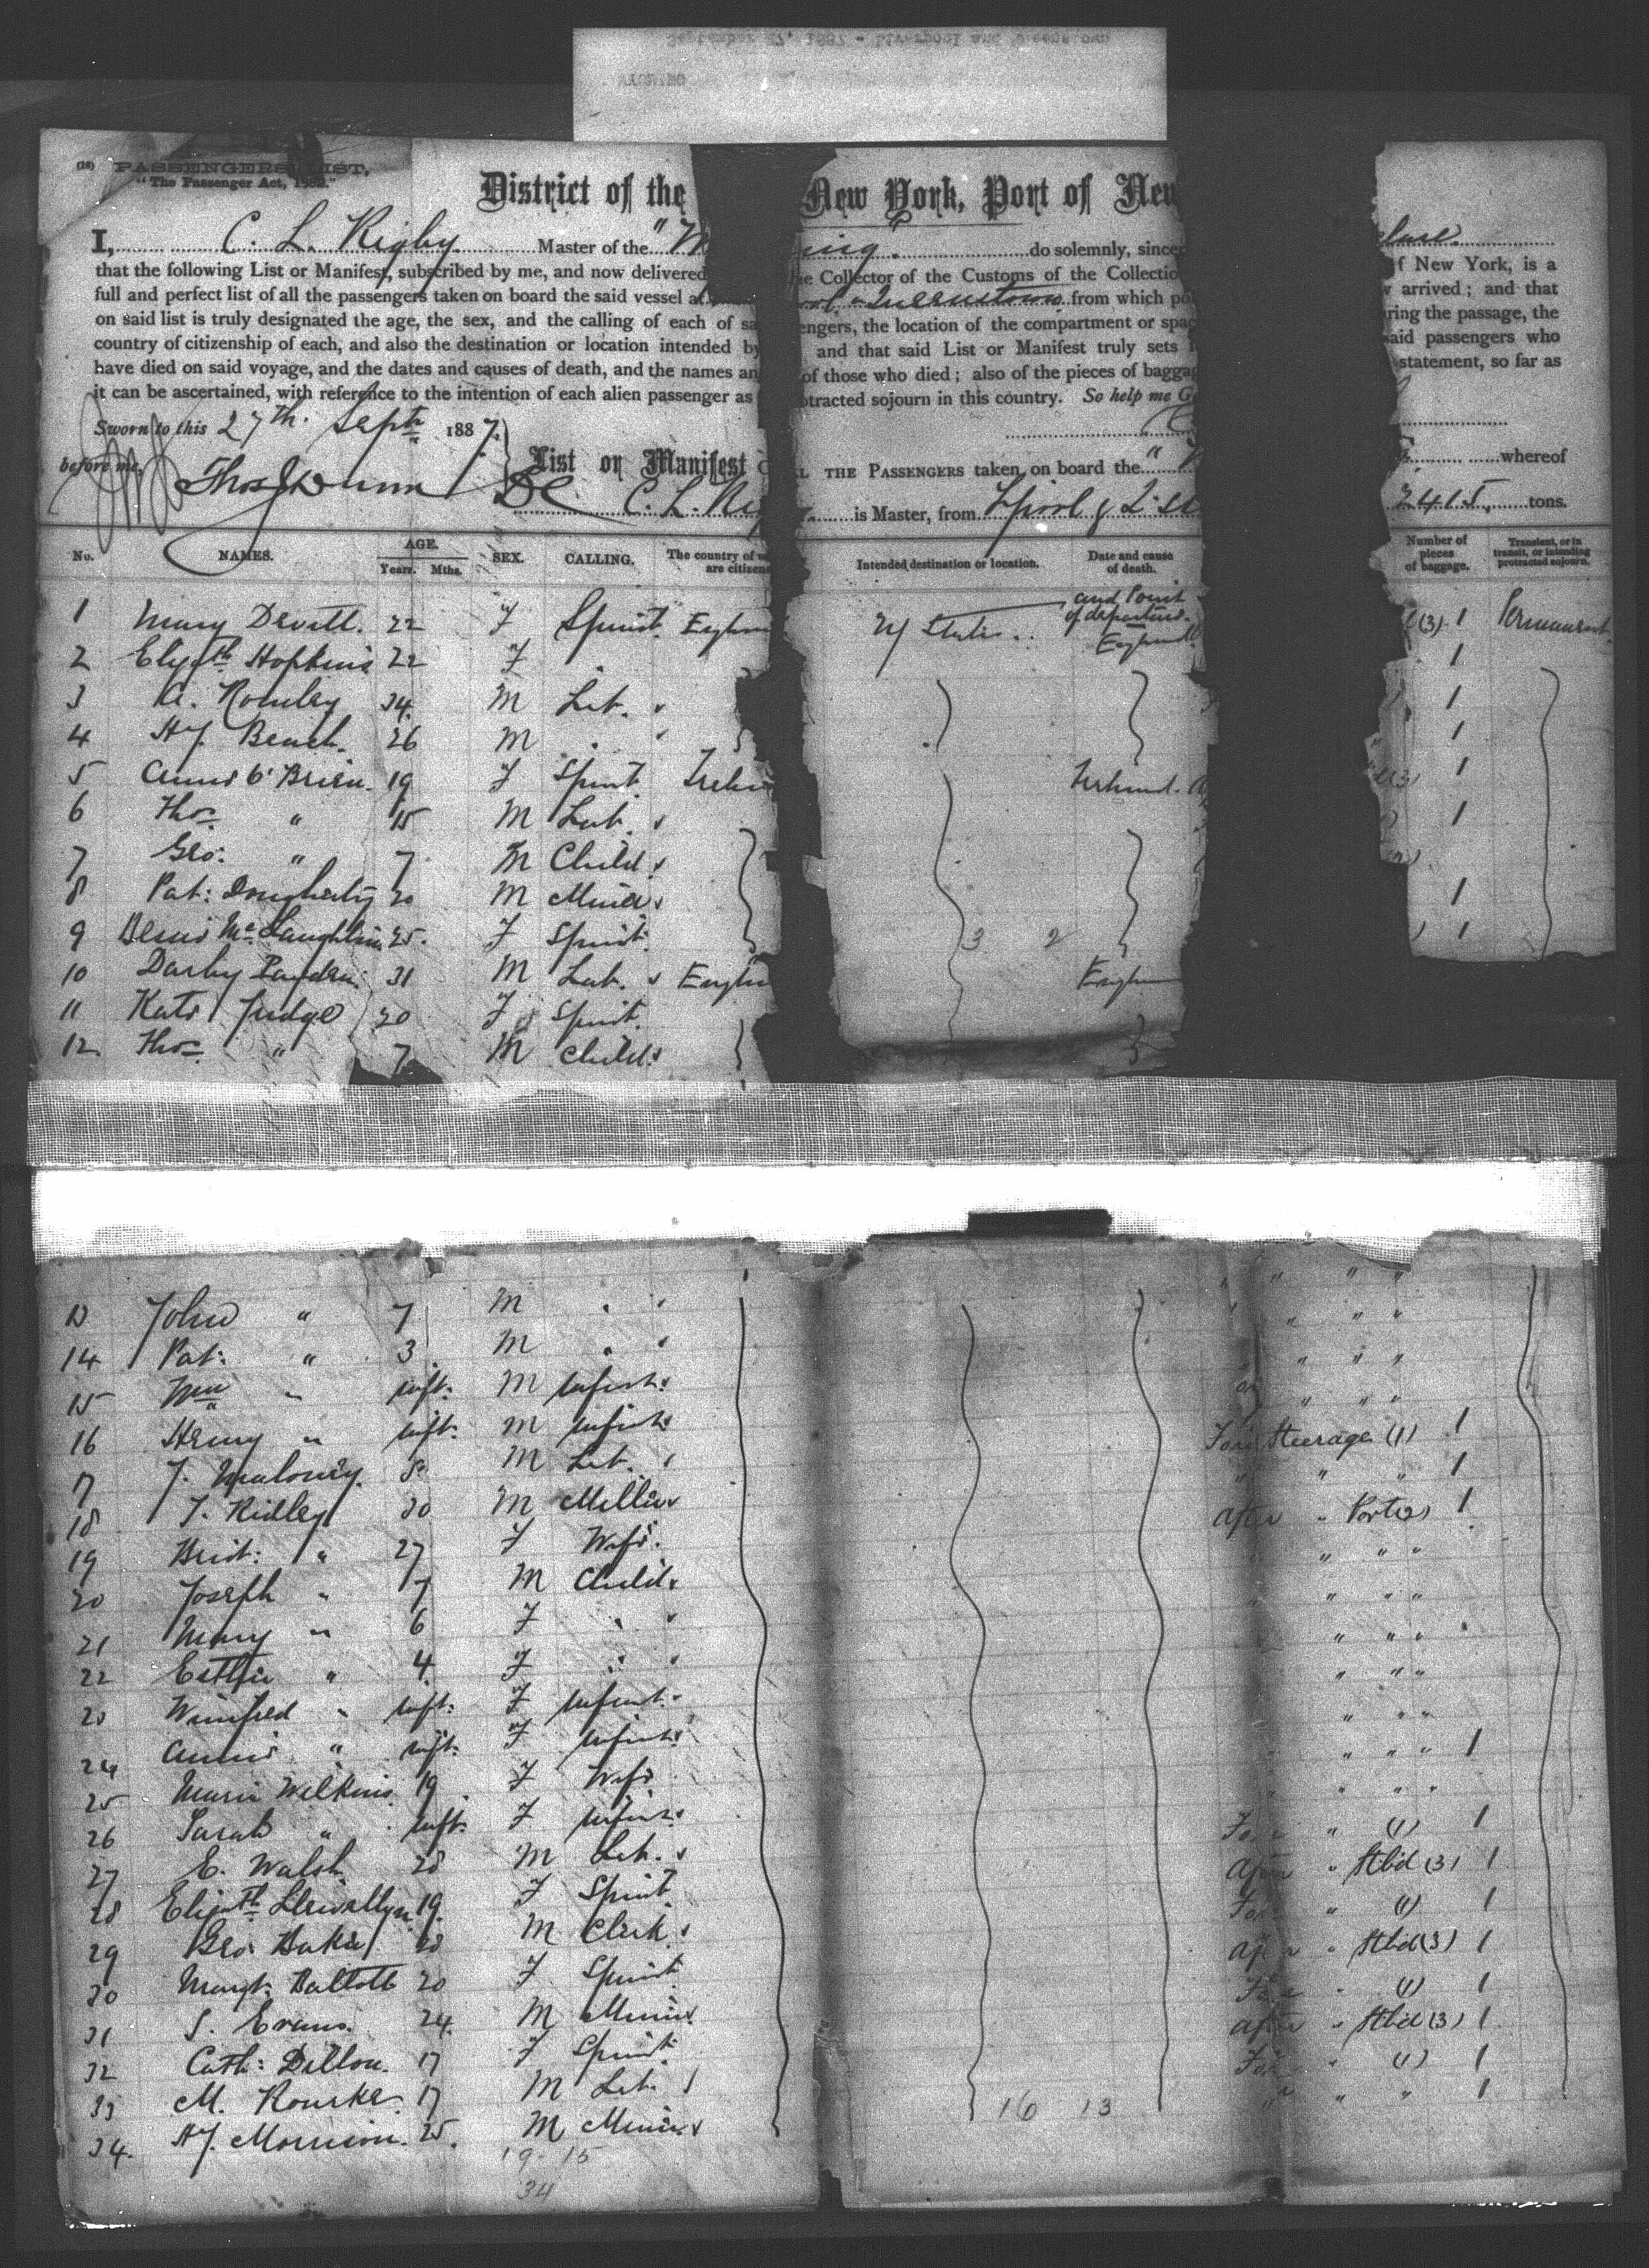 September 27, 1887 - Liverpool and Queenstown
WYOMING
(18) PASSENGERS LIST,
"The Passenger Act, 1882."
District of the New York, Port of New
I, C. L. Rigby Master of the " ing" do solemnly, sincer
that the following List or Manifest, subscribed by me, and now delivered he Collector of the Customs of the Collectio f New York, is a
full and perfect list of all the passengers taken on board the said vessel at ool & Queenstown from which po w arrived; and that
on said list is truly designated the age, the sex, and the calling of each of sa engers, the location of the compartment or spac ring the passage, the
country of citizenship of each, and also the destination or location intended by and that said List or Manifest truly sets f aid passengers who
have died on said voyage, and the dates and causes of death, and the names an of those who died; also of the pieces of bagga statement, so far as
it can be ascertained, with reference to the intention of each alien passenger as otracted sojourn in this country. So help me G
Sworn to this 27th Septr 1887
before me, Thos J Dunn DC
List or Manifest LL THE PASSENGERS taken on board the " whereof
C. L. Rig is Master, from Lpool & Q. 2415 tons.
No. NAMES. AGE. Years. Mths. SEX. CALLING. The country of w are citizens Intended destination or location. Date and cause of death. Number of pieces of baggage. Transient, or in transit, or intending protracted sojourn.
and Point of departure.
1 Mary Devitt. 22 F Spinst. Englan U States England (3) 1 Permanent
2 Elizth Hopkins 22 F 1
3 A. Romley 34 M Lab. " 1
4 Hy. Beach. 26 M " " 1
5 Annie O'Brien. 19 F Spinst. Irelan Ireland. (3) 1
6 Thos. " 15 M Lab. " 1
7 Geo: " 7 M Child "
8 Pat: Dougherty 20 M Miner " 1
9 Bessie McLaughlin 25. F Spinst. 3 2 1
10 Darby 31 M Lab. " Englan Englan
11 Kate Judge 30 F Spinst.
12 Thos. " 7 M Child "
13 John " 7 M " " " " "
14 Pat: " 3 M " " " " "
15 Wm " inft. M Infant " " " "
16 Henry " inft. M Infant " Fore Steerage (1) 1
17 J. Maloney. M Lab. " " " " 1
18 T. Ridley 30 M Miller " After " Port (2) 1
19 Brid: " 27 F Wife. " " "
20 Joseph " 7 M Child " " " "
21 Mary " 6 F " " " " "
22 Esther " 4 F " " " " "
23 Winifred " inft. F Infant " " " "
24 Annie " inft. F Infant " " " " 1
25 Maria Wilkins 19 F Wife " " "
26 Sarah " inft. F Infant " Fore " (1) 1
27 E. Walsh 28 M Lab. " After " Stbd (3) 1
28 Elizth Llewellyn 19. F Spinst Fore " (1) 1
29 Geo. Baker 28 M Clerk " After " Stbd (3) 1
30 Margt. 20 F Spinst Fore " (1) 1
31 S. Evans. 24. M Miner " After " Stbd (3) 1
32 Cath: Dillon. 17 F Spinst Fore " (1) 1
33 M. Rourke. 17 M Lab. " " " " 1
34. Hy. Morrison. 25. M Miner "
16 13
19 - 15
34